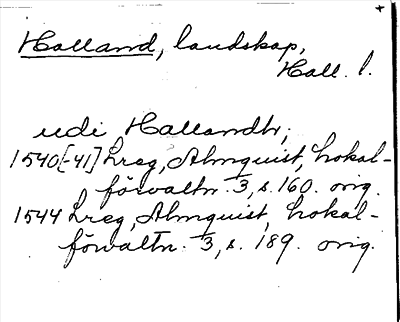 Halland, landskap,
Hall. l.
udi Hallandtr;
1540[-41] Lreg, Almquist, Lokal-
förvaltn. 3, s. 160. orig.
1544 Lreg, Almquist, Lokal-
förvaltn. 3, s. 189. orig.